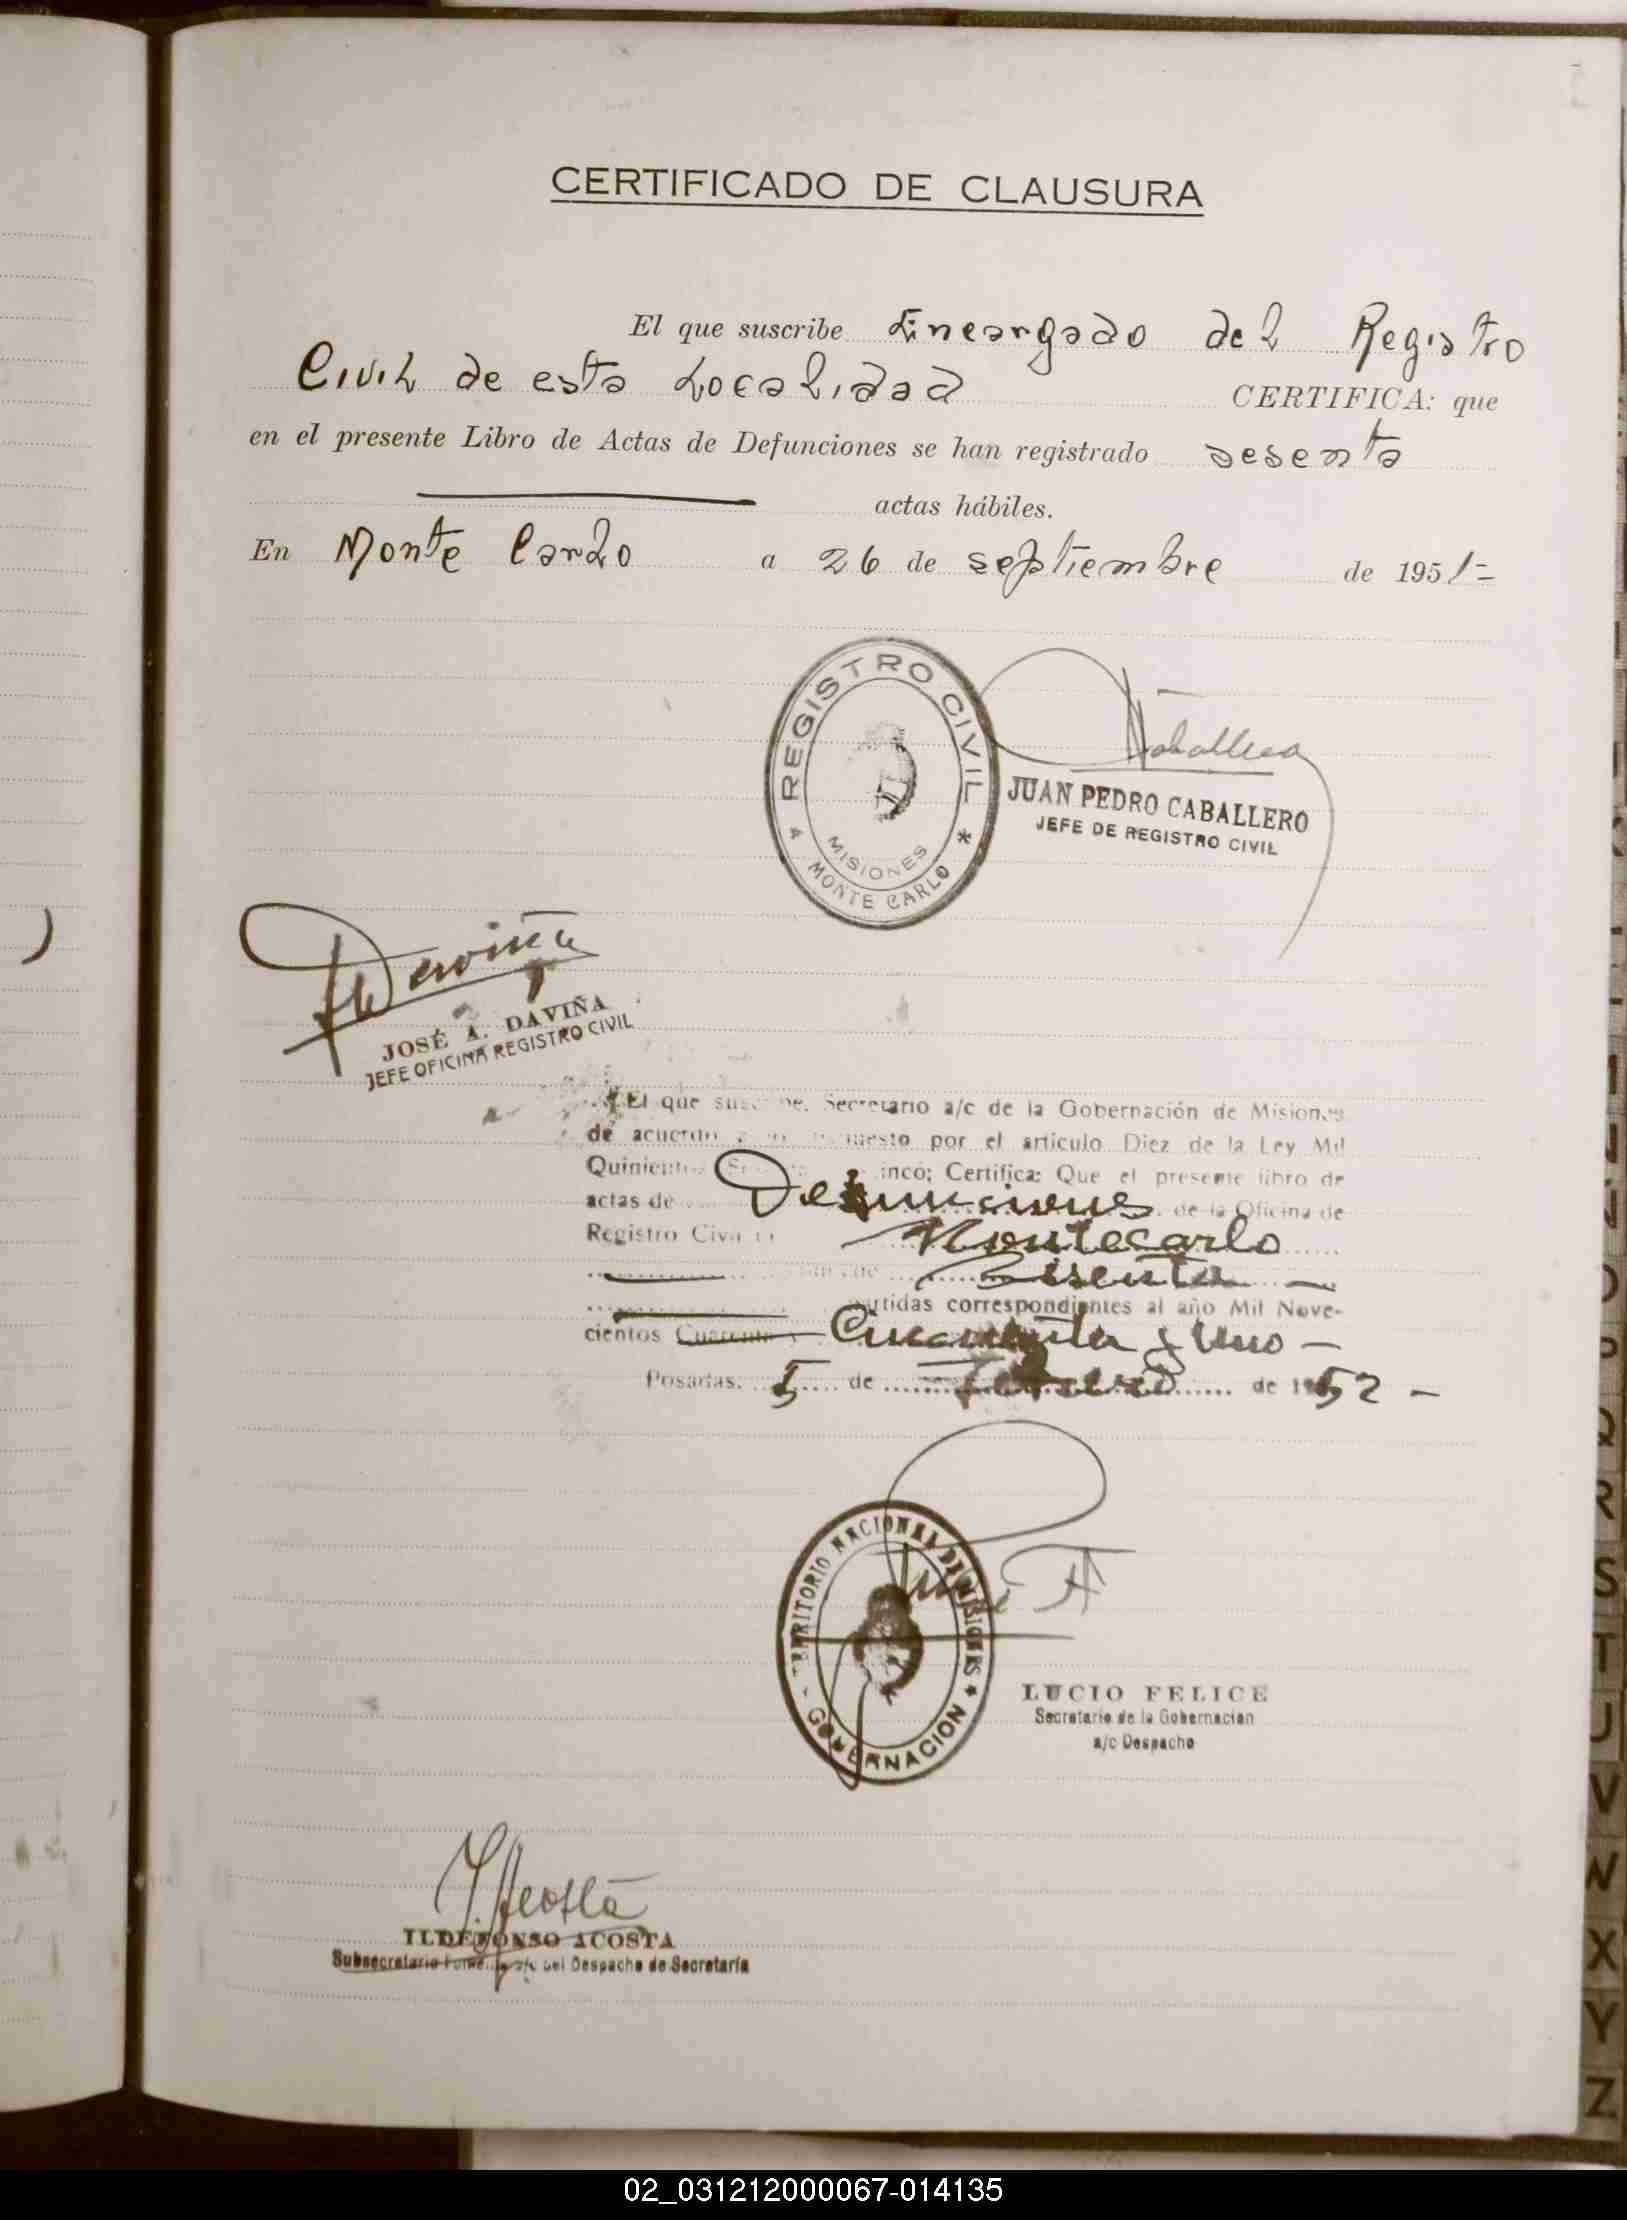 CERTIFICADO DE CLAUSURA
El que suscribe Encargado del Registro
Civil de esta Localidad CERTIFICA: que
en el presente Libro de Actas de Defunciones se han registrado sesenta
actas hábiles.
En Monte Carlo a 26 de septiembre de 1951=
REGISTRO CIVIL
MISIONES
MONTE CARLO
Caballero
JUAN PEDRO CABALLERO
JEFE DE REGISTRO CIVIL
Daviña
JOSÉ A. DAVIÑA
JEFE OFICINA REGISTRO CIVIL
El que suscribe, Secretario a/c de la Gobernación de Misiones
de acuerdo por el artículo Diez de la Ley Mil
Quinientos inco; Certifica: Que el presente libro de
actas de Defunciones de la Oficina de
Registro Civil Montecarlo
Sesenta —
partidas correspondientes al año Mil Nove-
cientos Cuarenta y Cincuenta y Uno —
Posadas, 5 de Febrero de 1952 -
TERRITORIO NACIONAL DE MISIONES
GOBERNACION
LUCIO FELICE
Secretario de la Gobernacion
a/c Despacho
I. Acosta
ILDEFONSO ACOSTA
Subsecretario a/c del Despacho de Secretaría
Q
R
S
T
U
V
W
X
Y
Z
02_031212000067-014135